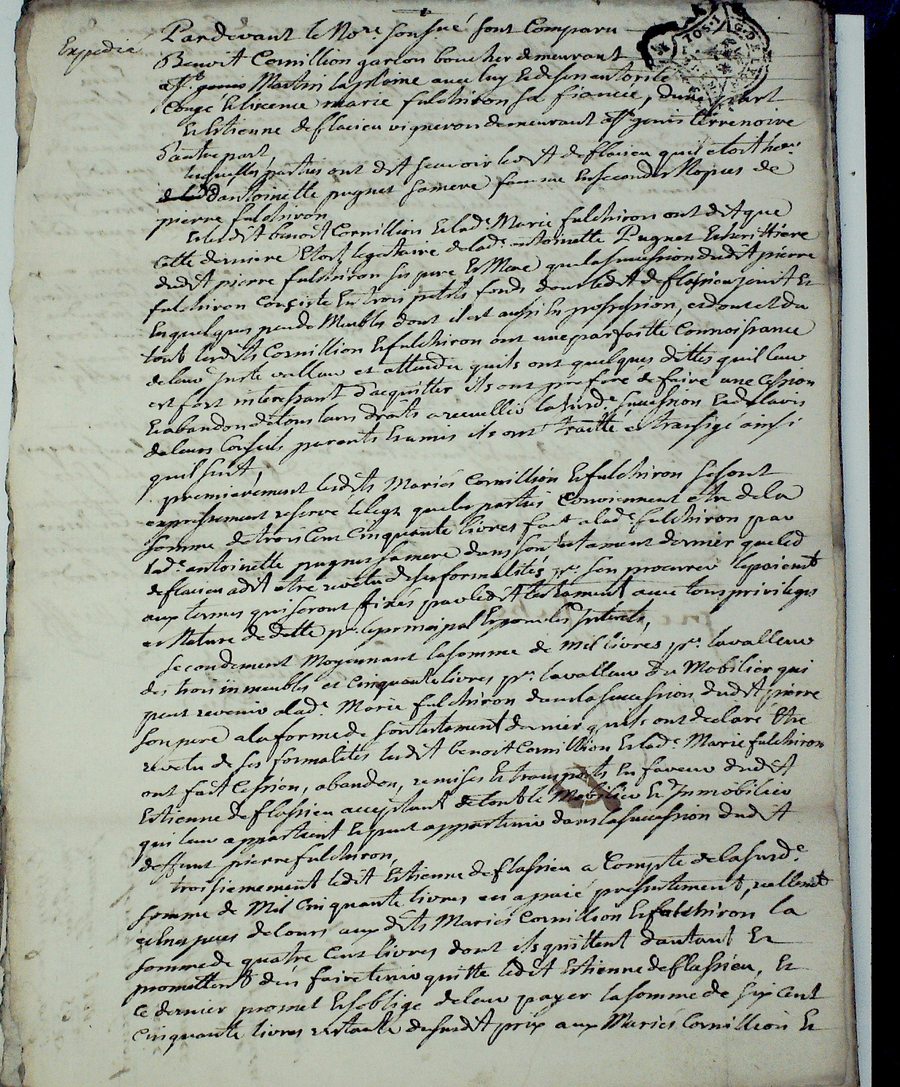 Pardevant le Nore soussné sont Comparu
Expédié
Benoit Cornillion garson boucher demeurant
Martin la plaine avec luy Ed de son autorité
Conge Et licence marie fulchiron sa fiancée, d'une part
Et Estienne deflacieu vigneron demeurant genis terrenoire
D'autre part
lesquelles parties ont dit scavoir ledit deflacieu quil etoit
d'antoinette pugnet sa mere femme En secondes Nopces de
pierre fulchiron
Et ledit benoit Cornillion Et lade Marie fulchiron ont dit que
cette derniere Etoit legataire de lade antoinette Pugnet Et heritiere
dudit pierre fulchiron ses pere Et Mere que la succession dudit pierre
fulchiron Consiste En trois petits fonds dont ledit deflassieu jouit Et
En quelques peu de Meubles dont il est aussi En possession, et dont et du
tout lesdits Cornillion Et fulchiron ont une parfaitte Connoissance
de leur juste valleur et attendu quils ont quelques dettes quil leur
est fort interessant d'acquitter ils ont preferé de faire une Cession
Et abandon de tous leurs droits a recueillir la surde succession Et de lavis
de leurs Conseils parents Et amis ils ont traitté et transigé ainsi
quil suit,
premierement lesdits Mariés Cornillion Et fulchiron se sont
expressement reservé le legs que les parties Conviennent etre de la
somme de trois Cent Cinquante livres fait a lade fulchiron par
lade antoinette pugnet sa mere dans son testament dernier que led
deflacieu a dit etre revetu de ses formalités pr. s'en procurer le paiemt
aux termes qui seront fixés par ledit testament avec tous privileges
et Nature de dette pr. le principal Et pour les Interets,
secondement Moyennant la somme de Mil livres, pr. la valleur
des trois immeubles et cinquante livres, pr. la valleur du Mobilier qui
peut revenir a lade. Marie fulchiron dans la succession dudit pierre
son pere a la forme de son testament dernier quils ont declaré Etre
revetu de ses formalités ledit benoit Cornillion Et lade. Marie fulchiron
ont fait Cession, abandon, remises Et transports En faveur dudit
Estienne deflassieu acceptant de tout le Mobilier Et Immobilier
qui leur appartient Et peut appartenir dans la succession dudit
deffunt pierre fulchiron,
troisiemement ledit Estienne deflassieu a Compte de la surde.
somme de Mil Cinquante livres en a paié presentement, reellemt
Especes de Cours aux dits Mariés Cornillion Et fulchiron la
somme de quatre Cent livres dont ils quittent d'autant Et
promettent d'en faire tenir quitte ledit Estienne deflassieu, Et
ce dernier promet Et soblige de leur payer la somme de six Cent
Cinquante livres restante du susdit prix aux Mariés Cornillion Et